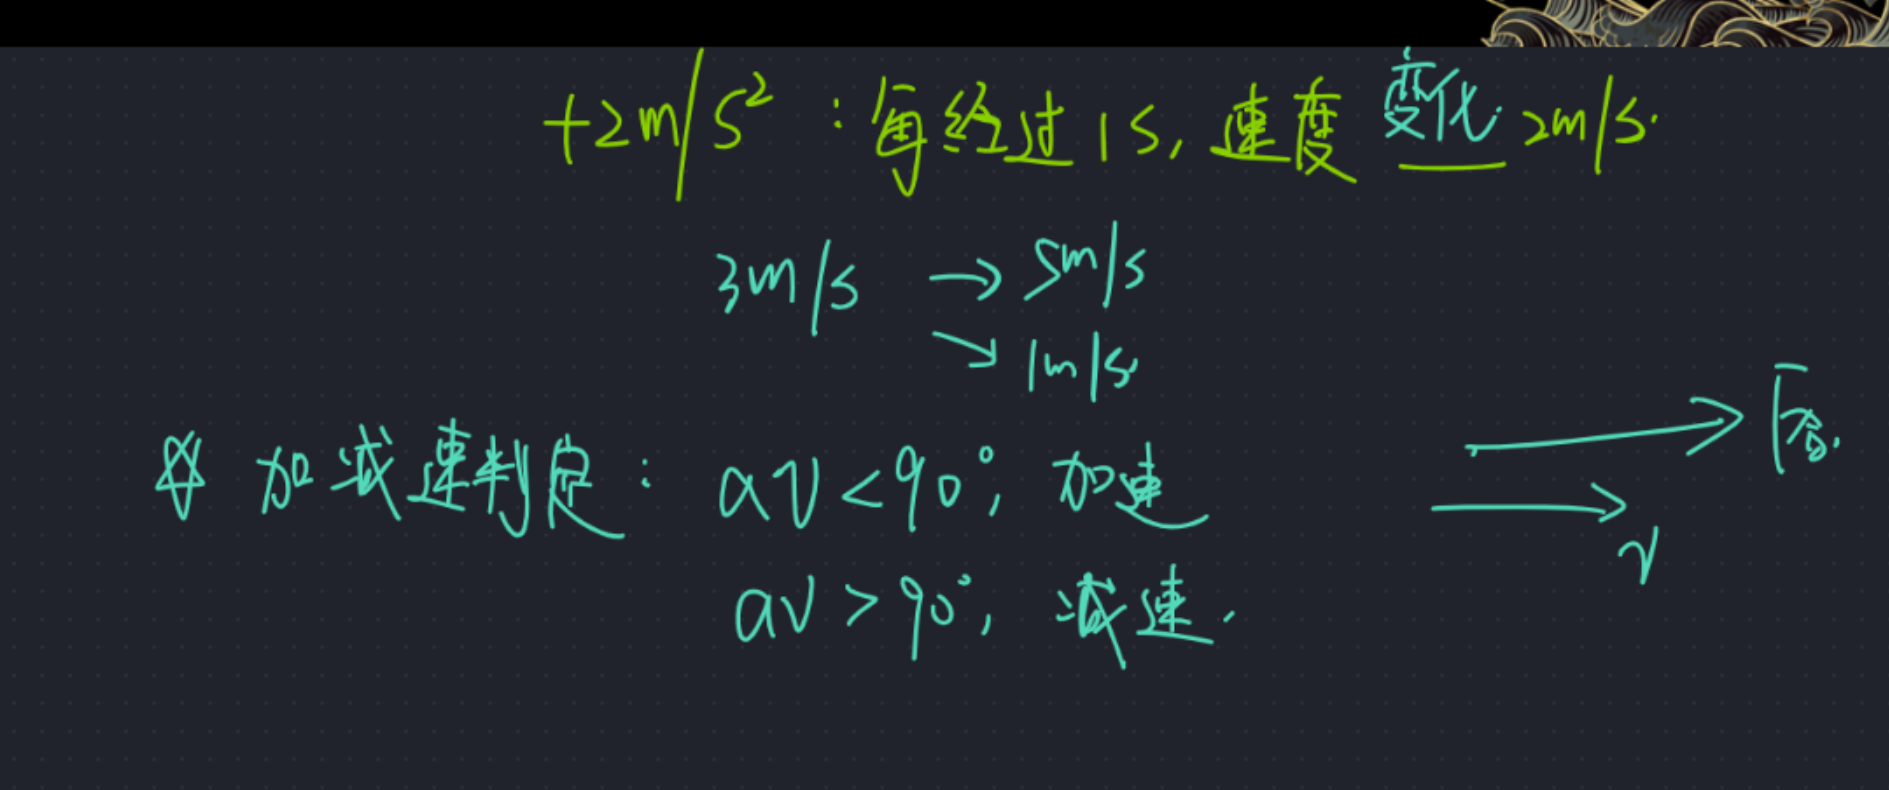 +2m/s² : 每经过1s, 速度变化2m/s.
3m/s → 5m/s
↘ 1m/s.
加减速判定: av<90°, 加速
F合.
v
av>90°, 减速.